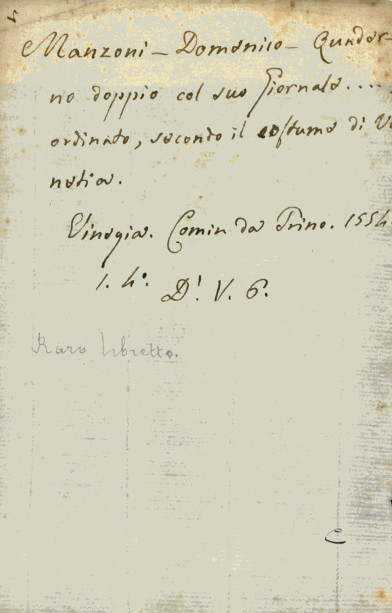 Manzoni - Domenico - Quader-
no doppio col suo Giornale....
ordinato, secondo il costume di V
netia.
Vinegia. Comin da Trino. 1554
1. 4º.
D! V. 6.
Raro libretto.
C